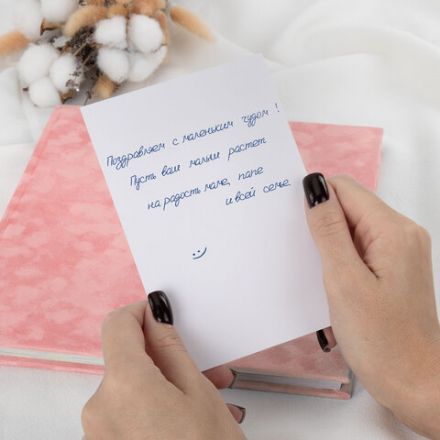 Поздравляем с маленьким чудом !
Пусть ваш малыш растет
на радость маме, папе
и всей семье
:)